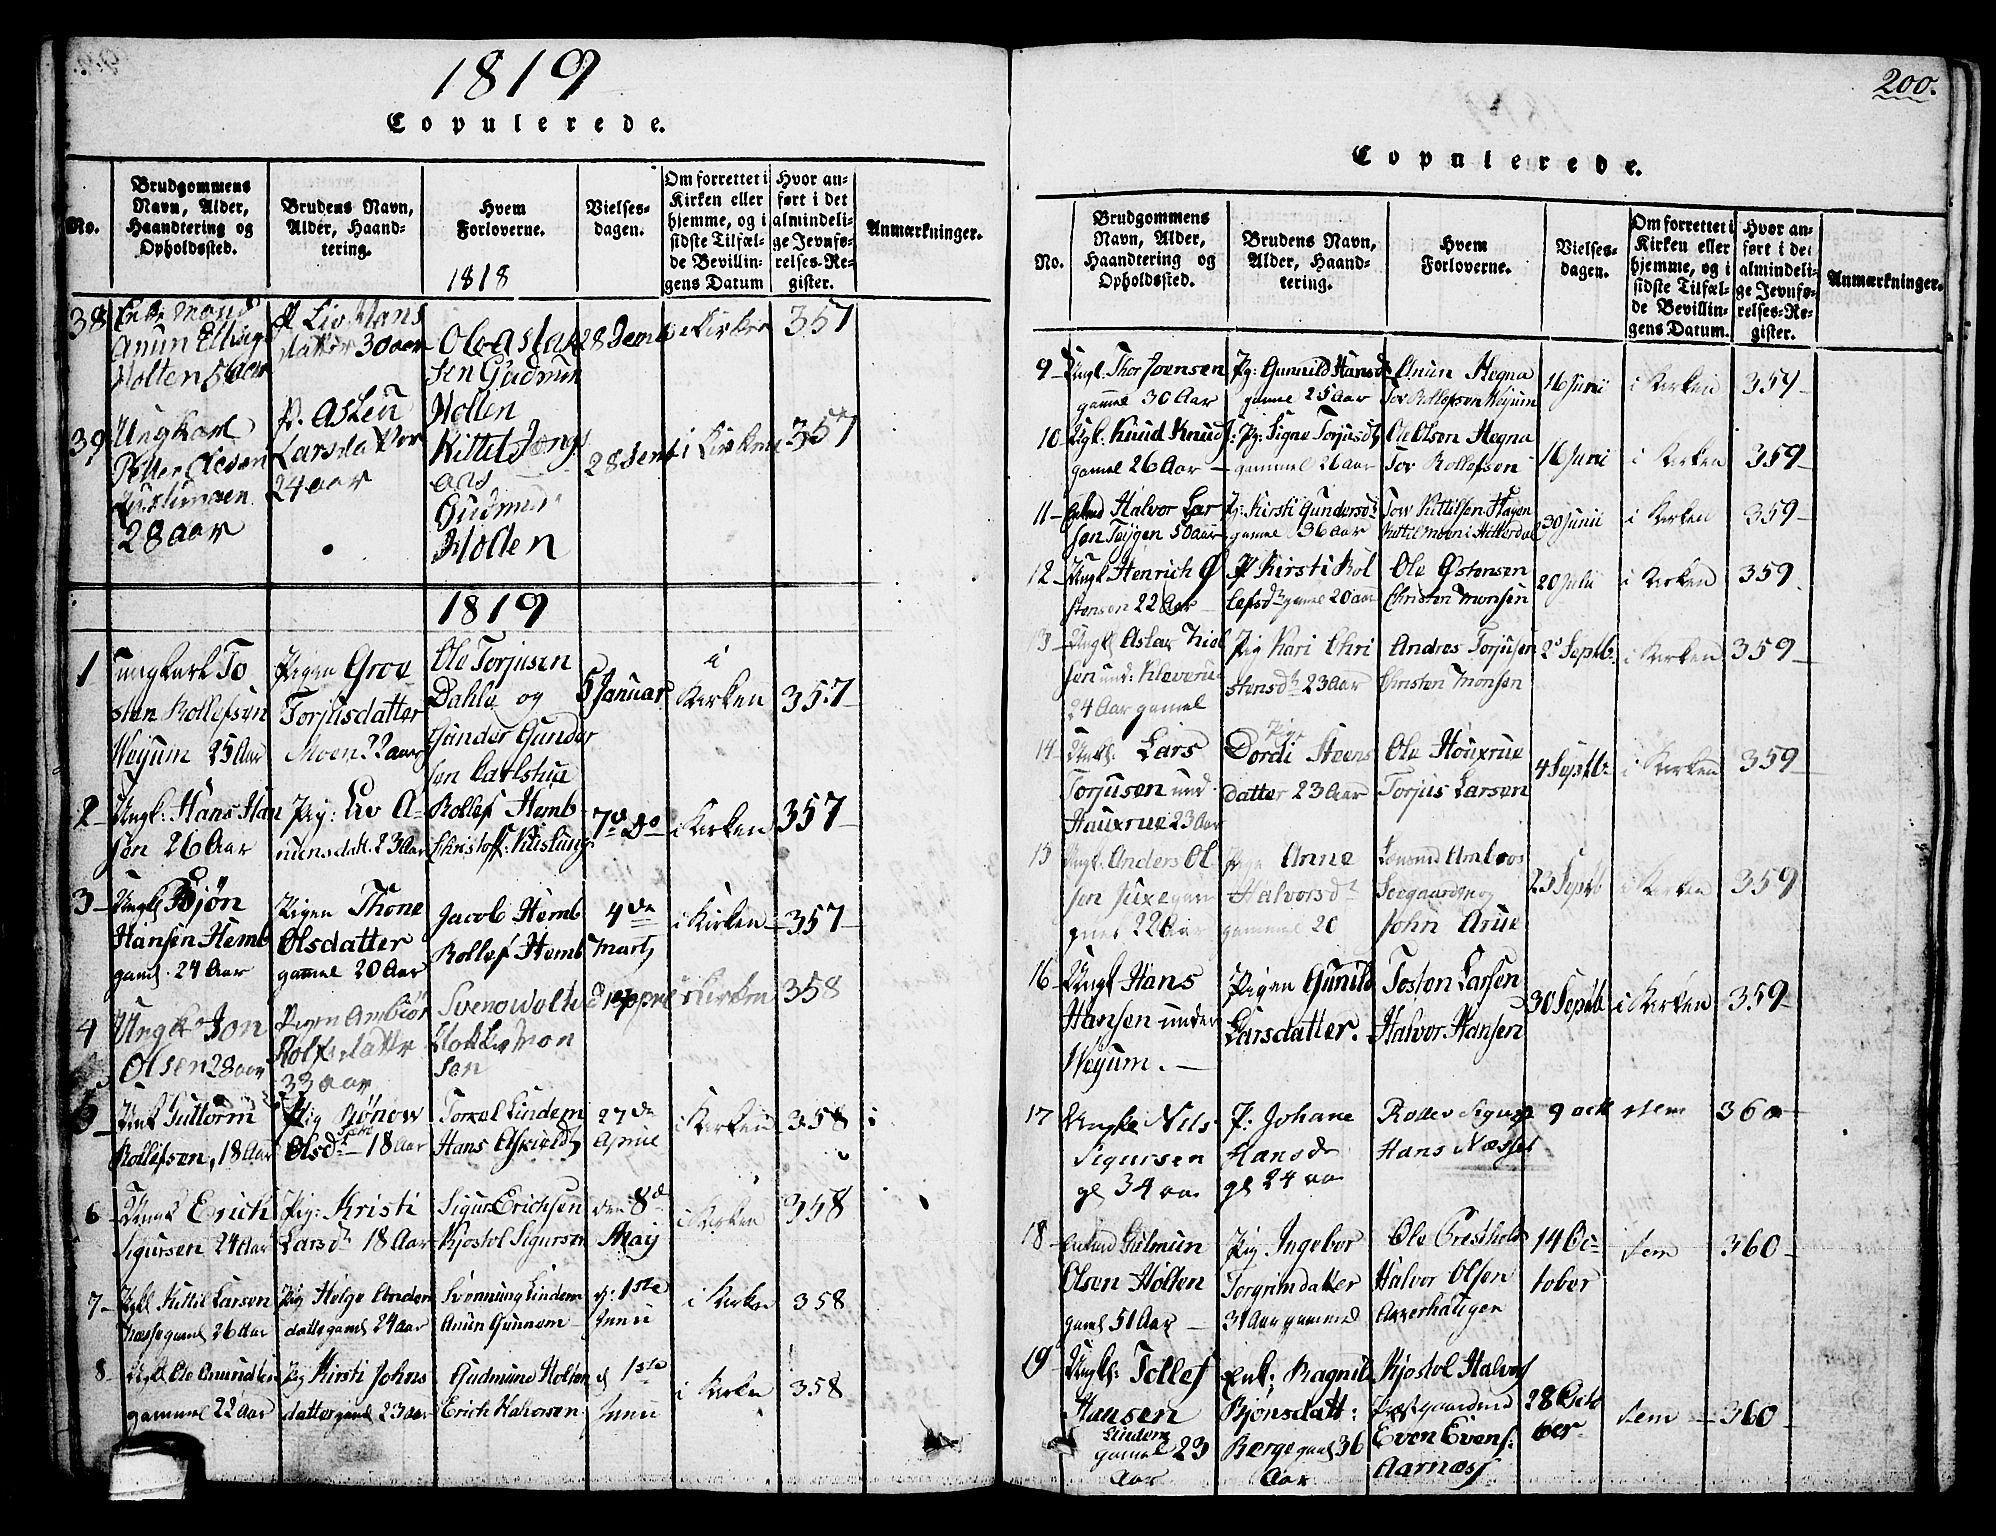 1819
Copulerede.
No.
Brudgommens Navn, Alder, Haandtering og Opholdssted.
Brudens Navn, Alder, Haandtering.
Hvem Forloverne.
Vielsesdagen.
Om forrettet i Kirken eller hjemme, og i sidste Tilfælde Bevillingens Datum
Hvor anført i det almindelige Jevnførelses-Register.
Anmærkninger.
1818
38 Holten 56 Aar
P. Liv Hans
datter 30 aar
Ole Aslak
sen Gudmun
Holten
i Kirken 357
39 Ungkarl
28 aar
P. Asleu
Larsdatter
24 aar
Kittil
Gudmun
Holten
i Kirken 357
1819
1 Ungkarl To
sten Rollefsen
Weyum 25 Aar
Pigen Groe
Torjusdatter
Moen 22 aar
Ole Torjusen
Dahle og
Gunder Gunder
sen
5 Januar
i
Kirken
357
2 Ungk: Hans Han
sen 26 Aar
Pig: Liv A-
nunsdatt. 23 Aar
Rollef Hemb
Christoff:
7de Do
i Kirken 357
3 Ungk Bjøn
Hansen Hemb
gaml. 24 Aar
Pigen Thone
Olsdatter
gammel 20 Aar
Jacob Hemb
Rollef Hemb
4de
Marty
i Kirken 357
4 Ungk Jon
Olsen 28 aar
Pigen Ambiør
Rolfsdatte
33 aar
i Kirken 358
5 Unk Guttorm
Rollefsen, 18 Aar
Pig Rønow
Olsdr 18 Aar
Torkel Lindem
Hans
27de
Aprile
i Kirken 358
6 Ungk Erich
Sigursen 24 Aar
Pig: Kristi
Larsdr 18 Aar
Sigur Erichsen
Kjostol Sigursen
den 8de
May
i Kirken 358
7 Ungk Kittil Larsen
gaml 26 Aar
Pig Helge Anden
datte gaml 24 aar
Svennung Lindem
Anun
d: 1ste
Junii
i Kirken 358
8 Ungk Ole Amundsen
gammel 22 Aar
Pig Kirsti Johns
datter gaml 23 aar
Gudmund Holten
Erich Halvorsen
d 1ste
Junii
i Kirken 358
200.
Copulerede.
No.
Brudgommens Navn, Alder, Haandtering og Opholdssted.
Brudens Navn, Alder, Haandtering.
Hvem Forloverne.
Vielsesdagen.
Om forrettet i Kirken eller hjemme, og i sidste Tilfælde Bevillingens Datum.
Hvor anført i det almindelige Jevnførelses-Register.
Anmærkninger.
9 Ungk: Thor Joensen
gamel 30 Aar
Pg: Gunnild Hansdr
gamel 25 Aar
Anun Hegna
Tov Rollefsen Weyum
16 Junii
i Kirken 359
10 Ungk: Knud Knuds
gamel 26 Aar
Pg: Signe Torjusdr
gammel 26 aar
Ole Olsen Hegna
Tov Rollefsen
16 Junii
i Kirken 359
11 Enkmd Halvor Lar
sen Teigen 50 aar
Pg: Kirsti Gundersdr
gamel 36 Aar
Tov Kittilsen Hagen
Kittil Moen i Hitterdal
30 Junii
i Kirken 359
12 Ungk Henrich Ø
stensen 22 Aar
P Kirsti Rol
lefsdr gamel 20 aar
Ole Østensen
Christen Monsen
20 Julii
i Kirken 359
13 Ungk Aslak Niel
sen und:
24 Aar gamel
Pig Kari Chri
stensdr 23 Aar
Andres Torjusen
Christen Monsen
2 Septbr
i Kirken 359
14 Unk: Lars
Torjusen und
Hauxrue 23 Aar
Pige
Dordi Steens
datter 23 Aar
Ole Houxrue
Torjus Larsen
4 Septbr
i Kirken 359
15 Ungk. Anders Ol
sen
22 Aar
Pige Anne
Halvorsdr
gammel 20
John Arue
23 Septb
i Kirken 359
16 Ungk Hans
Hansen under
Weyum.
Pigen Gunild
Larsdatter.
Tosten Larsen
Halvor Hansen
30 Septb
i Kirken 359
17 Ungke Nils
Sigursen
gl 34 aa
P. Johane
Hansdr
gl 24 aa
Hans Næsset
9 octb
360
18 Enkmd
Olsen Holten
gaml 51 Aar
Pig Ingebor
Torgrimdatter
31 Aar gammel
Halvor Olsen
14 Oc
tober
Hem
360
19 Ungk: Tollef
Hansen
Lindem
gamel 23
Aar
Enk: Ragnil
Bjønsdatt:
Berge gaml 36
Aar
Kjostol Halvors
Even Evens:
Aarness
28 Octo
ber
Hem
360